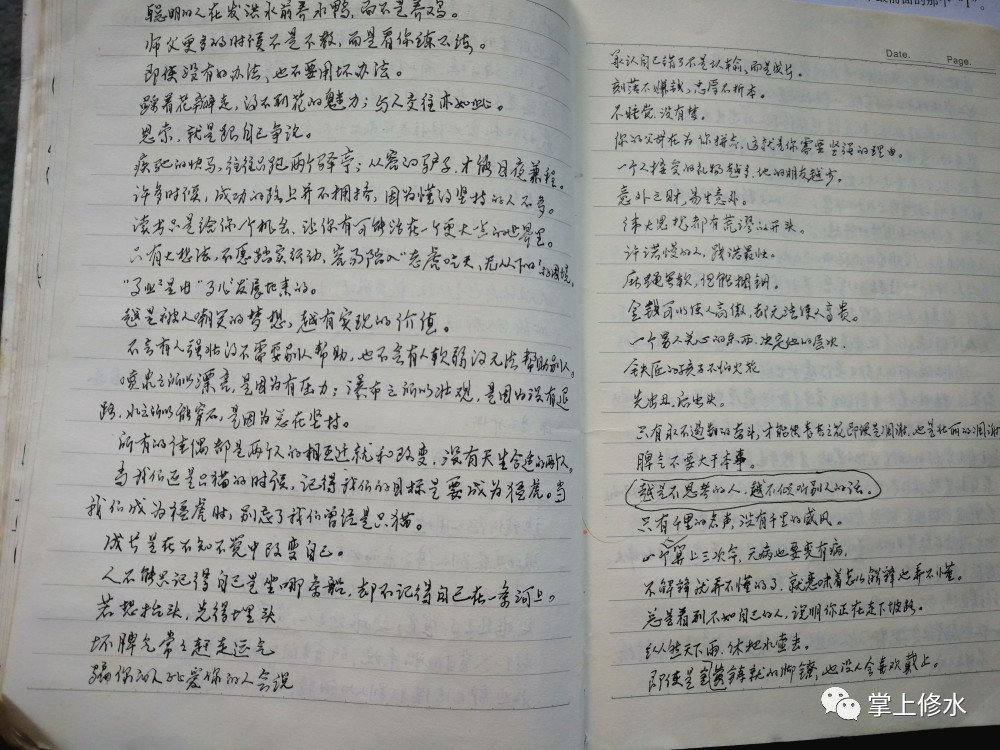 聪明的人在发洪水前养水鸭，而不是养鸡。
师父更多的时候不是不教，而是看你练不练。
即使没有的办法，也不要用坏办法。
踩着花瓣走，得不到花的魅力；与人交往亦如此。
思索，就是跟自己争论。
疾驰的快马，往往只跑两个驿亭；从容的驴子，才能日夜兼程。
许多时候，成功的路上并不拥挤，因为懂得坚持的人不多。
读书只是给你个机会，让你有可能活在一个更大一点的世界里。
只有大想法，不愿踏实行动，容易陷入"老虎吃天，无从下口"的困境。
"了此"是由"了儿"发展出来的。
越是被人嘲笑的梦想，越有实现的价值。
不会有人强壮得不需要别人帮助，也不会有人软弱得无法帮助别人。
喷泉之所以漂亮，是因为有压力；瀑布之所以壮观，是因为没有退
路，水之所以能穿石，是因为总在坚持。
所有的佳偶都是两个人的相互迁就和改变，没有天生合适的两人。
当我们还是只猫的时候，记得我们的目标是要成为猛虎。当
我们成为猛虎时，别忘了我们曾经是只猫。
成长是在不知不觉中改变自己。
人不能只记得自己是坐哪条船，却不记得自己在一条河上。
若想抬头，先得埋头
坏脾气常常赶走运气
骗你的人比爱你的人会说
Date. Page.
承认自己错了不是认输，而是成长。
刻薄不赚钱，忠厚不折本。
不睡觉，没有梦。
你的父母在为你拼命，这就是你需要坚强的理由。
一个人接受的礼物越多，他的朋友越少。
意外之财，易生意外。
伟大思想都有荒谬的开头。
许诺慢的人，践诺最忙。
麻绳虽软，但能捆钢。
金钱可以使人高傲，却无法使人高贵。
一个男人关心的东西，决定他的层次。
铁匠的孩子不怕火花
先出丑，后出头。
只有永不遏制的奋斗，才能使青春之花即便是凋谢，也是壮丽的凋谢
脾气不要大于本事。
越是不思考的人，越不倾听别人的话。
只有千里的名声，没有千里的威风。
一卦算上三次命，无病也要变有病。
不解释就弄不懂的了，就意味着怎么解释也弄不懂。
总是看到不如自己的人，说明你正在走下坡路。
纵然天下雨，休把水壶丢。
即使是黄金铸就的脚镣，也没人会喜欢戴上。
掌上修水